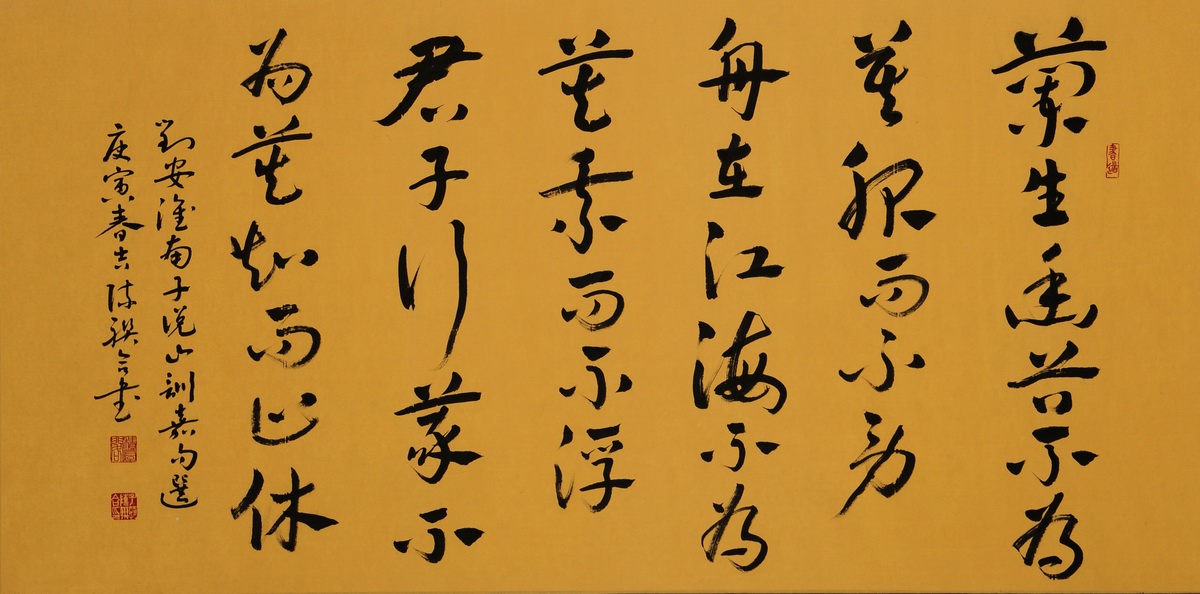 蘭生幽谷不為
莫服而不芳
舟在江海不為
莫乘而不浮
君子行義不
為莫知而止休
劉安淮南子說山訓嘉句選
庚寅春吉陳合書